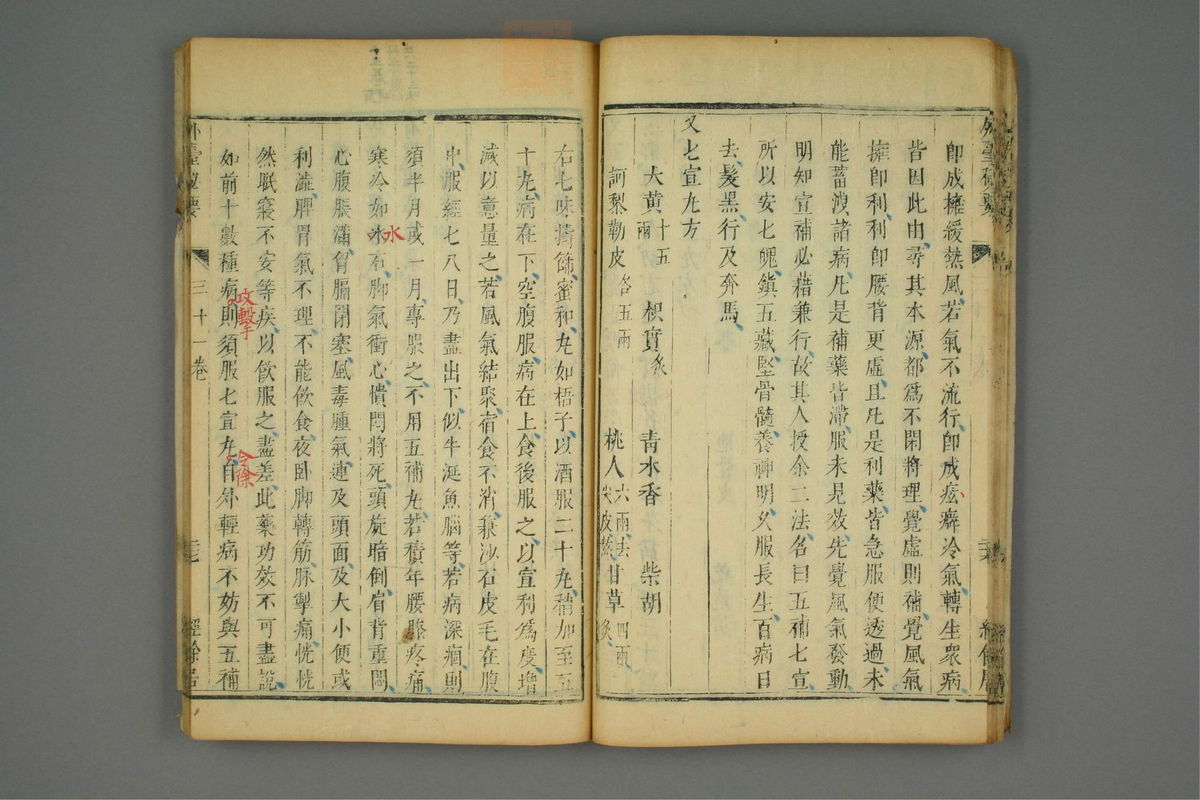 外臺秘要
即成癱緩熱風若氣不流行即成痃癖冷氣轉生衆病
皆因此由尋其本源都爲不閑將理覺虛則補覺風氣
擁即利利即腰背更虛且凡是利藥皆急服便透過未
能蓄洩諸病凡是補藥皆滯服未見效先覺風氣發動
明知宣補必藉兼行故其人授余二法名曰五補七宣
所以安七魄鎮五藏堅骨髓養神明久服長生百病日
去髮黑行及奔馬
又七宣丸方
大黄十五兩 枳實炙 青木香 柴胡
訶梨勒皮各五兩 桃人六兩去尖皮熬 甘草四兩炙
右七味擣篩蜜和丸如梧子以酒服二十丸稍加至五
十丸病在下空腹服病在上食後服之以宣利爲度增
減以意量之若風氣結聚宿食不消兼沙石皮毛在腹
中服經七八日乃盡出下似牛涎魚腦等若病深痼則
須半月或一月專服之不用五補丸若積年腰膝疼痛
寒冷如氷石脚氣衝心憒悶將死頭旋暗倒肩背重悶
水
心腹脹滿胷膈閉塞風毒腫氣連及頭面及大小便或
利澁脾胃氣不理不能飲食夜卧脚轉筋脉掣痛恍恍
然眠寢不安等疾以飲服之盡差此藥功效不可盡說
如前十數種病則須服七宣丸自外輕病不妨與五補
攻擊于
令除
外臺秘要
三十一卷
經餘居